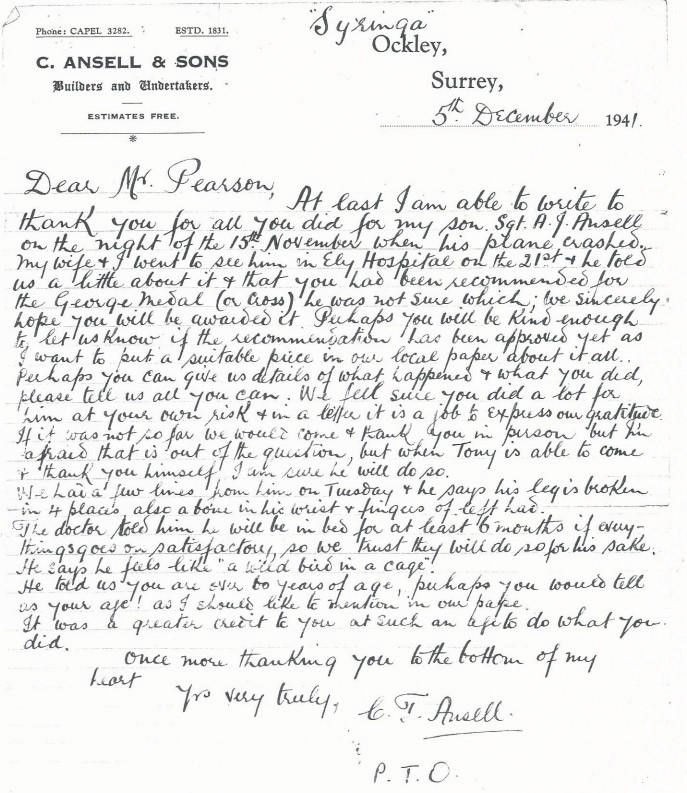 Phone: CAPEL 3282. ESTD. 1831.
C. ANSELL & SONS
Builders and Undertakers.
ESTIMATES FREE.
"Syringa"
Ockley,
Surrey,
5th December 1941.
Dear Mr. Pearson,
At last I am able to write to
thank you for all you did for my son Sgt. A. J. Ansell
on the night of the 15th November when his plane crashed.
My wife & I went to see him in Ely Hospital on the 21st & he told
us a little about it & that you had been recommended for
the George Medal (or Cross) he was not sure which; we sincerely
hope you will be awarded it. Perhaps you will be kind enough
to let us know if the recommendation has been approved yet as
I want to put a suitable piece in our local paper about it all..
Perhaps you can give us details of what happened & what you did,
please tell us all you can. We fell sure you did a lot for
him at your own risk & in a letter it is a job to express our gratitude.
If it was not so far we would come & thank you in person but I'm
afraid that is out of the question, but when Tony is able to come
& thank you himself I am sure he will do so.
We had a few lines from him on Tuesday & he says his leg is broken
in 4 places, also a bone in his wrist & fingers of left had.
The doctor told him he will be in bed for at least 6 months if every-
things goes on satisfactory, so we trust they will do so for his sake.
He says he feels like "a wild bird in a cage"!
He told us you are over 60 years of age, perhaps you would tell
us your age! as I should like to mention in our paper.
It was a greater credit to you at such an age to do what you
did.
Once more thanking you to the bottom of my
heart
Yrs very truly,
C. F. Ansell.
P. T. O.